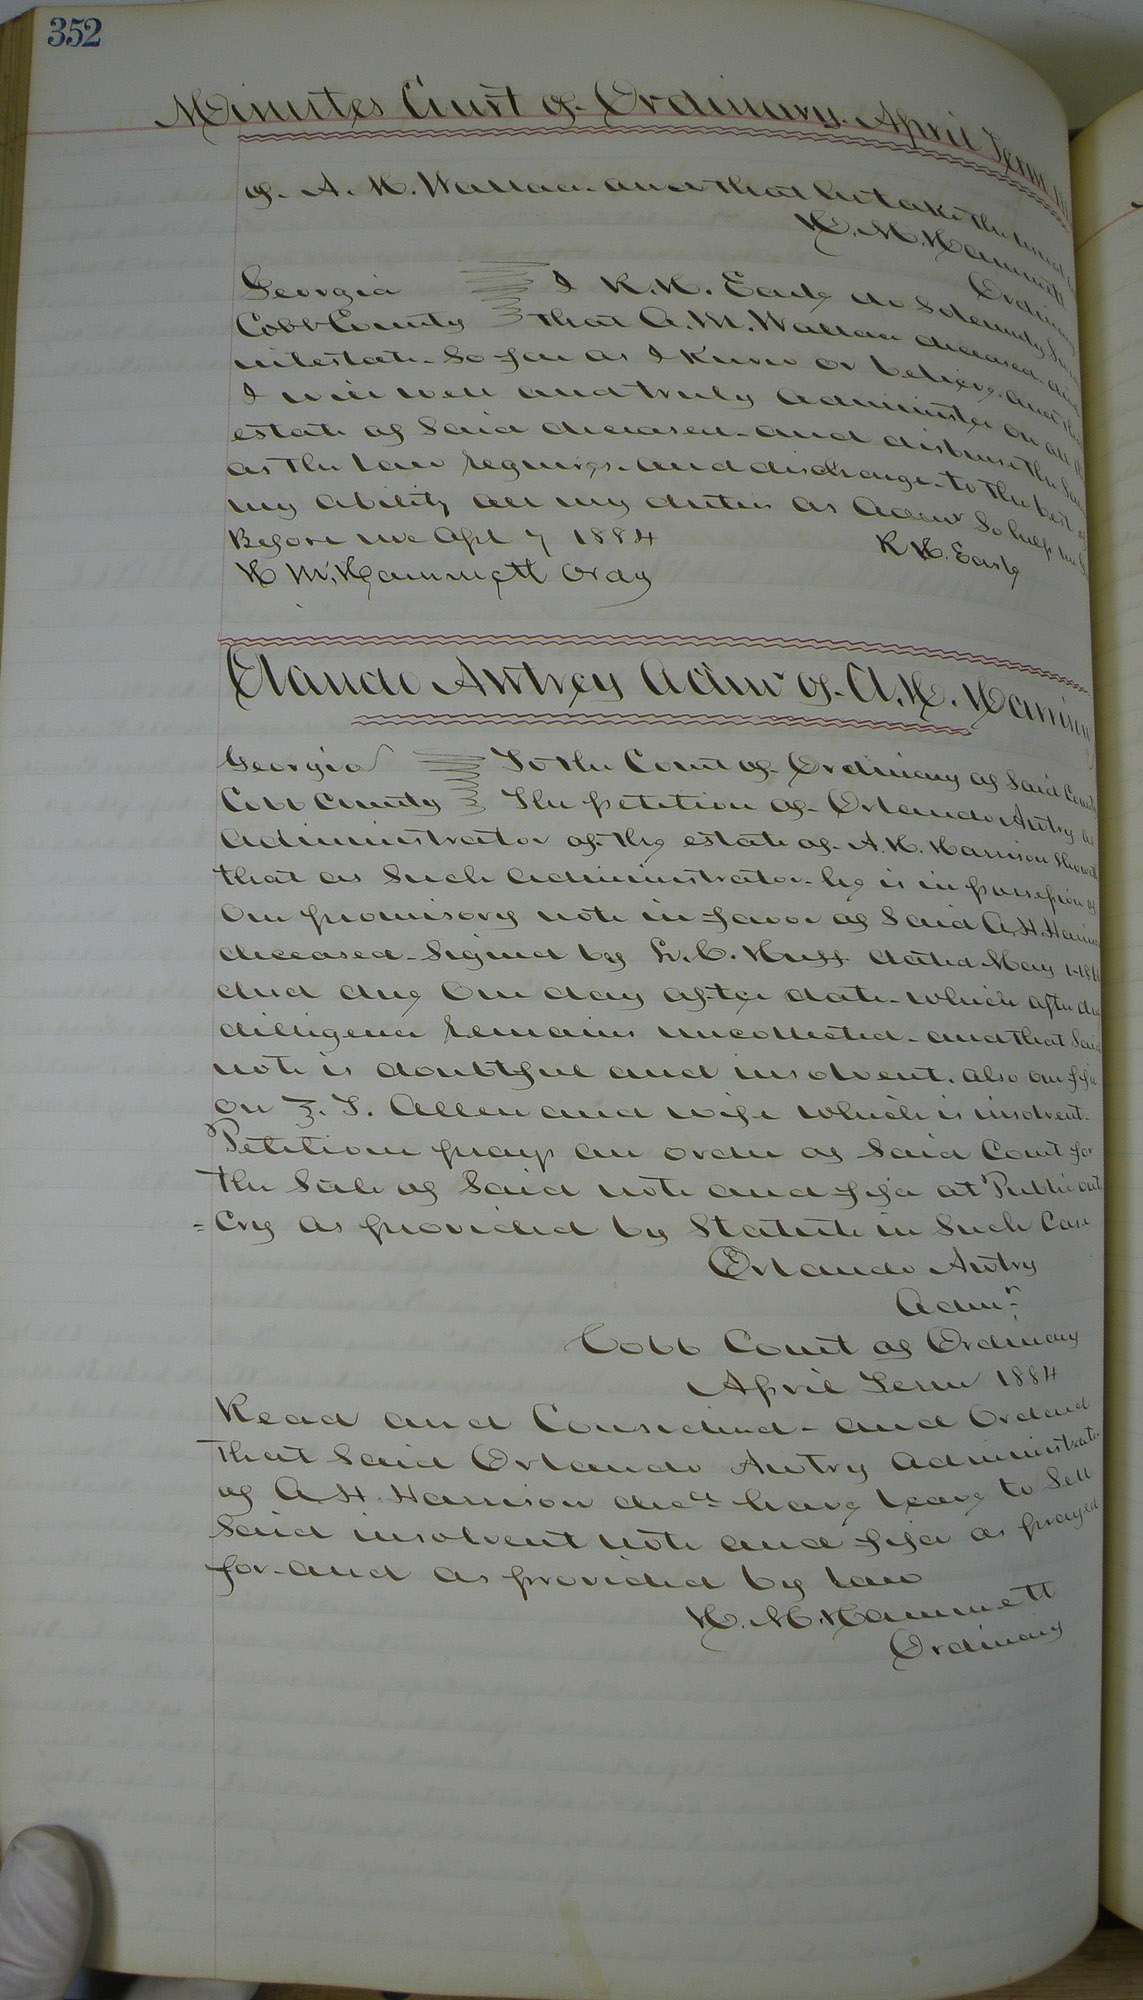 352
Minutes Court of Ordinary. April Term
of A. M. Wallace and that he take the
H. M. Hammett
Ordinary
Georgia I R. H. Early do Solemnly
Cobb County that A. M. Wallace deceased died
intestate So far as I know or believe. and that
I will well and truly administer on all the
estate of Said deceased and disburse the Same
as the law requires and discharge to the best of
my ability all my duties as Admr So help me
Before me Apl 7 1884 R H. Early
H M. Hammett Ordy
Orlando Awtrey Admr of A. H. Harrison
Georgia To the Court of Ordinary of Said County
Cobb County The petition of Orlando Awtry as
administrator of the estate of A. H. Harrison Showeth
that as Such administrator he is in possession of
One promisory note in favor of Said A. H. Harrison
deceased Signed by L. C. Huff dated May 1
and due One day after date which after due
dilligence remains uncollected and that Said
note is doubtful and insolvent. also one fifa
on Z. T. Allen and wife which is insolvent.
Petitioner prays an order of Said Court for
the Sale of Said note and fifa at Public out
=cry as provided by Statute in Such Case
Orlando Awtry
Admr
Cobb Court of Ordinary
April Term 1884
Read and Considered and Ordered
that Said Orlando Awtry administrator
of A. H. Harrison decd have leave to Sell
Said insolvent note and fifa as prayed
for and as provided by law
H. M. Hammett
Ordinary